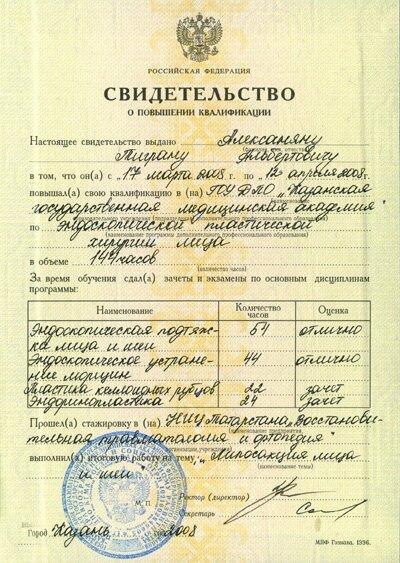 РОССИЙСКАЯ ФЕДЕРАЦИЯ
СВИДЕТЕЛЬСТВО
О ПОВЫШЕНИИ КВАЛИФИКАЦИИ
Настоящее свидетельство выдано Алексаняну
Тиграну Альбертовичу
в том, что он(а) с „17 марта 2008 г. по „12 апреля 2008 г.
повышал(а) свою квалификацию в (на) ГОУ ДПО „Казанская
государственная медицинская академия"
по эндоскопической пластической
(наименование программы дополнительного профессионального образования)
хирургии лица
в объеме 144 часов
(количество часов)
За время обучения сдал(а) зачеты и экзамены по основным дисциплинам
программы:
Наименование Количество часов Оценка
Эндоскопическая подтяж-
ка лица и шеи 54 отлично
Эндоскопическое устране-
ние морщин 44 отлично
Пластика келлоидных рубцов 22 зачт
Эндоринопластика 24 зачт
Прошел(а) стажировку в (на) НИЦ Татарстана „Восстанови-
(наименование предприятия,
тельная травматология и ортопедия"
организации, учреждения)
выполнил(а) итоговую работу на тему: „Липосакция лица
(наименование темы)
и шеи"
М. П.
Ректор (директор)
Секретарь
Город Казань год 2008
МПФ Гознака. 1996.